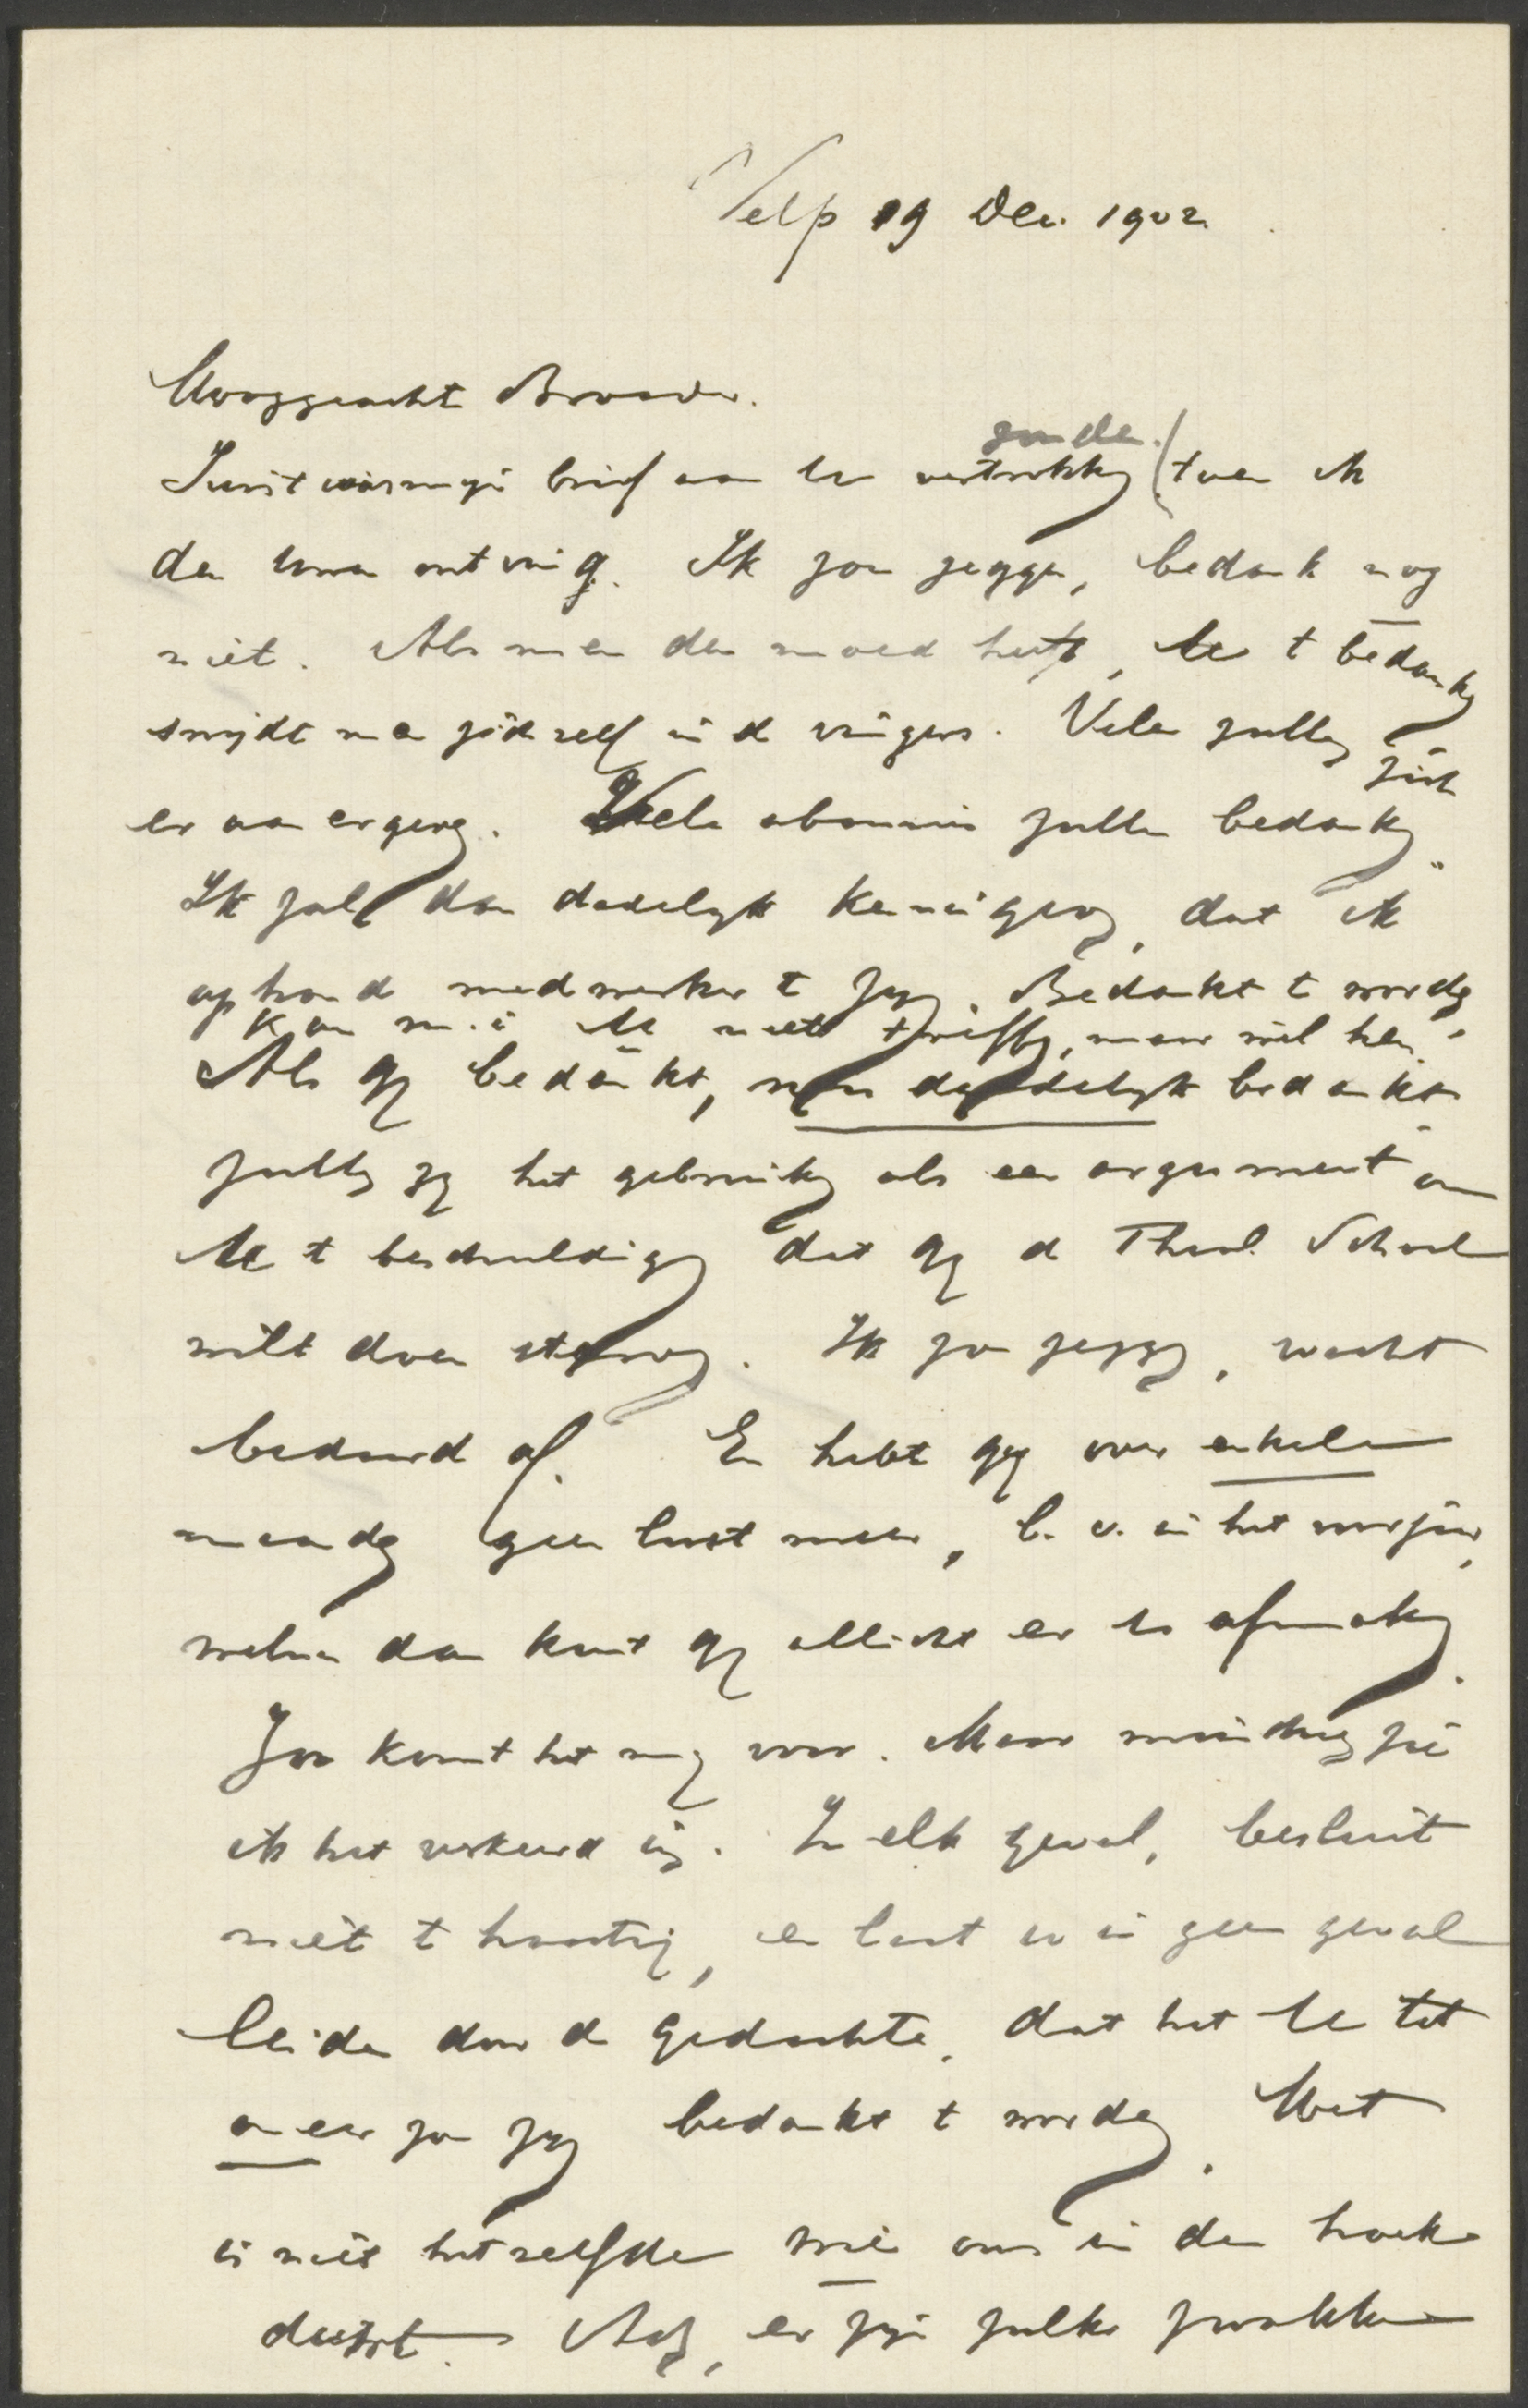 Velp 19 Dec. 1902.
Hooggeacht Broeder.
zonder
Juist was mijn brief aan U vertrokken (toen ik
den Uwen ontving. Ik zou zeggen, bedank nog
niet. Als men den moed heeft, U t bedanken
snijdt men zichzelf in d vingers. Velen zullen zich
er aan ergeren. Vele abonnés zullen bedanken.
Ik zal dan dadelijk kennis geven, dat ik
ophoud medewerker t zijn. Bedankt t worden,
kan m. i. U niet treffen, maar wel hen.
Als gij bedankt, nu dadelijk bedankt
zullen zij het gebruiken als een argument om
U t beschuldigen dat gij d Theol. School
wilt doen sterven. Ik zou zeggen, wacht
bedaard af. En hebt gij over enkele
maanden geen lust meer, b. v. in het voorjaar,
welnu dan kunt gij allicht er U afmaken.
Zoo komt het mij voor. Maar misschien zie
ik het verkeerd in. In elk geval, besluit
niet t haastig, en laat U in geen geval
leiden door d gedachte, dat het U tot
oneer zou zijn bedankt t worden. Het
is niet hetzelfde wie ons in den hoek
duwt. Ach, er zijn zulke zwakke